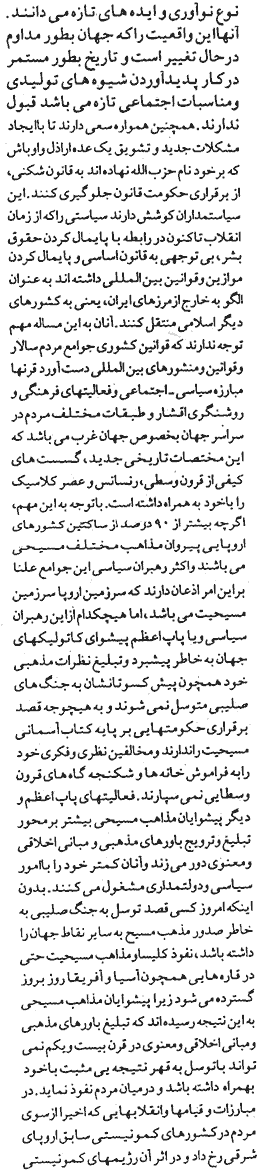 نوع نوآوری و ایده های تازه می دانند.
آنها این واقعیت را که جهان بطور مداوم
در حال تغییر است و تاریخ بطور مستمر
در کار پدید آوردن شیوه های تولیدی
و مناسبات اجتماعی تازه می باشد قبول
ندارند. همچنین همواره سعی دارند تا با ایجاد
مشکلات جدید و تشویق یک عده اراذل و اوباش
که بر خود نام حزب الله نهاده اند به قانون شکنی،
از برقراری حکومت قانون جلوگیری کنند. این
سیاستمداران کوشش دارند سیاستی را که از زمان
انقلاب تاکنون در رابطه با پایمال کردن حقوق
بشر، بی توجهی به قانون اساسی و پایمال کردن
موازین و قوانین بین المللی داشته اند به عنوان
الگو به خارج از مرزهای ایران، یعنی به کشورهای
دیگر اسلامی منتقل کنند. آنان به این مساله مهم
توجه ندارند که قوانین کشوری جوامع مردم سالار
و قوانین و منشورهای بین المللی دست آورد قرنها
مبارزه سیاسی - اجتماعی و فعالیتهای فرهنگی و
روشنگری اقشار و طبقات مختلف مردم در
سراسر جهان بخصوص جهان غرب می باشد که
این مختصات تاریخی جدید، گسست های
کیفی از قرون وسطی، رنسانس و عصر کلاسیک
را با خود به همراه داشته است. با توجه به این مهم،
اگرچه بیشتر از ۹۰ درصد از ساکنین کشورهای
اروپایی پیروان مذاهب مختلف مسیحی
می باشند و اکثر رهبران سیاسی این جوامع علنا
بر این امر اذعان دارند که سرزمین اروپا سرزمین
مسیحیت می باشد، اما هیچکدام از این رهبران
سیاسی و یا پاپ اعظم پیشوای کاتولیکهای
جهان به خاطر پیشبرد و تبلیغ نظرات مذهبی
خود همچون پیش کسوتانشان به جنگ های
صلیبی متوسل نمی شوند و به هیچوجه قصد
برقراری حکومتهایی بر پایه کتاب آسمانی
مسیحیت را ندارند و مخالفین نظری و فکری خود
را به فراموش خانه ها و شکنجه گاه های قرون
وسطایی نمی سپارند. فعالیتهای پاپ اعظم و
دیگر پیشوایان مذاهب مسیحی بیشتر بر محور
تبلیغ و ترویج باورهای مذهبی و مبانی اخلاقی
و معنوی دور می زند و آنان کمتر خود را با امور
سیاسی و دولتمداری مشغول می کنند. بدون
اینکه امروز کسی قصد توسل به جنگ صلیبی به
خاطر صدور مذهب مسیح به سایر نقاط جهان را
داشته باشد، نفوذ کلیسا و مذاهب مسیحیت حتی
در قاره هایی همچون آسیا و آفریقا روز بروز
گسترده می شود زیرا پیشوایان مذاهب مسیحی
به این نتیجه رسیده اند که تبلیغ باورهای مذهبی
و مبانی اخلاقی و معنوی در قرن بیست و یکم نمی
تواند با توسل به قهر نتیجه یی مثبت با خود
بهمراه داشته باشد و در میان مردم نفوذ نماید. در
مبارزات و قیامها و انقلابهایی که اخیرا از سوی
مردم در کشورهای کمونیستی سابق اروپای
شرقی رخ داد و در اثر آن رژیمهای کمونیستی